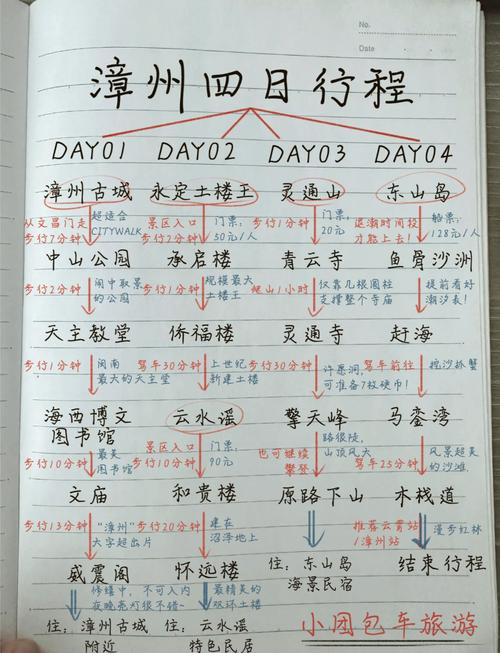 No.
Date
漳州四日行程
DAY01 DAY02 DAY03 DAY04
漳州古城 永定土楼王 灵通山 东山岛
从文昌门走 步行7分钟
超适合 CITYWALK
景区入口 步行2分钟
门票: 50元/人
步行1分钟
门票 20元
退潮时间段 才能上去!
船票: 128元/人
中山公园 承启楼 青云寺 鱼骨沙洲
步行2分钟
闹中取景 的公园
步行1分钟
规模最大 土楼王
爬山1小时
仅靠几根圆柱 支撑整个寺庙
提前看好 潮汐表!
天主教堂 侨福楼 灵通寺 赶海
步行1分钟
闽南 最大的天主堂
驾车30分钟
上世纪 新建土楼
步行30分钟
许愿洞, 可准备7枚硬币!
驾车前往
挖沙抓蟹
海西博文 图书馆 云水谣 擎天峰 马銮湾
步行10分钟
最美 图书馆
景区入口 步行10分钟
门票: 90元
也可继续 攀登
路很陡, 山顶风大
驾车25分钟
风景超美 的沙滩
文庙 和贵楼 原路下山 木栈道
步行13分钟
“漳州” 大字超出片
步行20分钟
建在 沼泽地上
推荐云霄站 /漳州站
漫步红林
威震阁 怀远楼 住: 东山岛 海景民宿 结束行程
修缮中,不可入内 夜晚亮灯很不错~
最精美的 双环土楼
住: 漳州古城 附近
住: 云水谣 特色民居
小团包车旅游